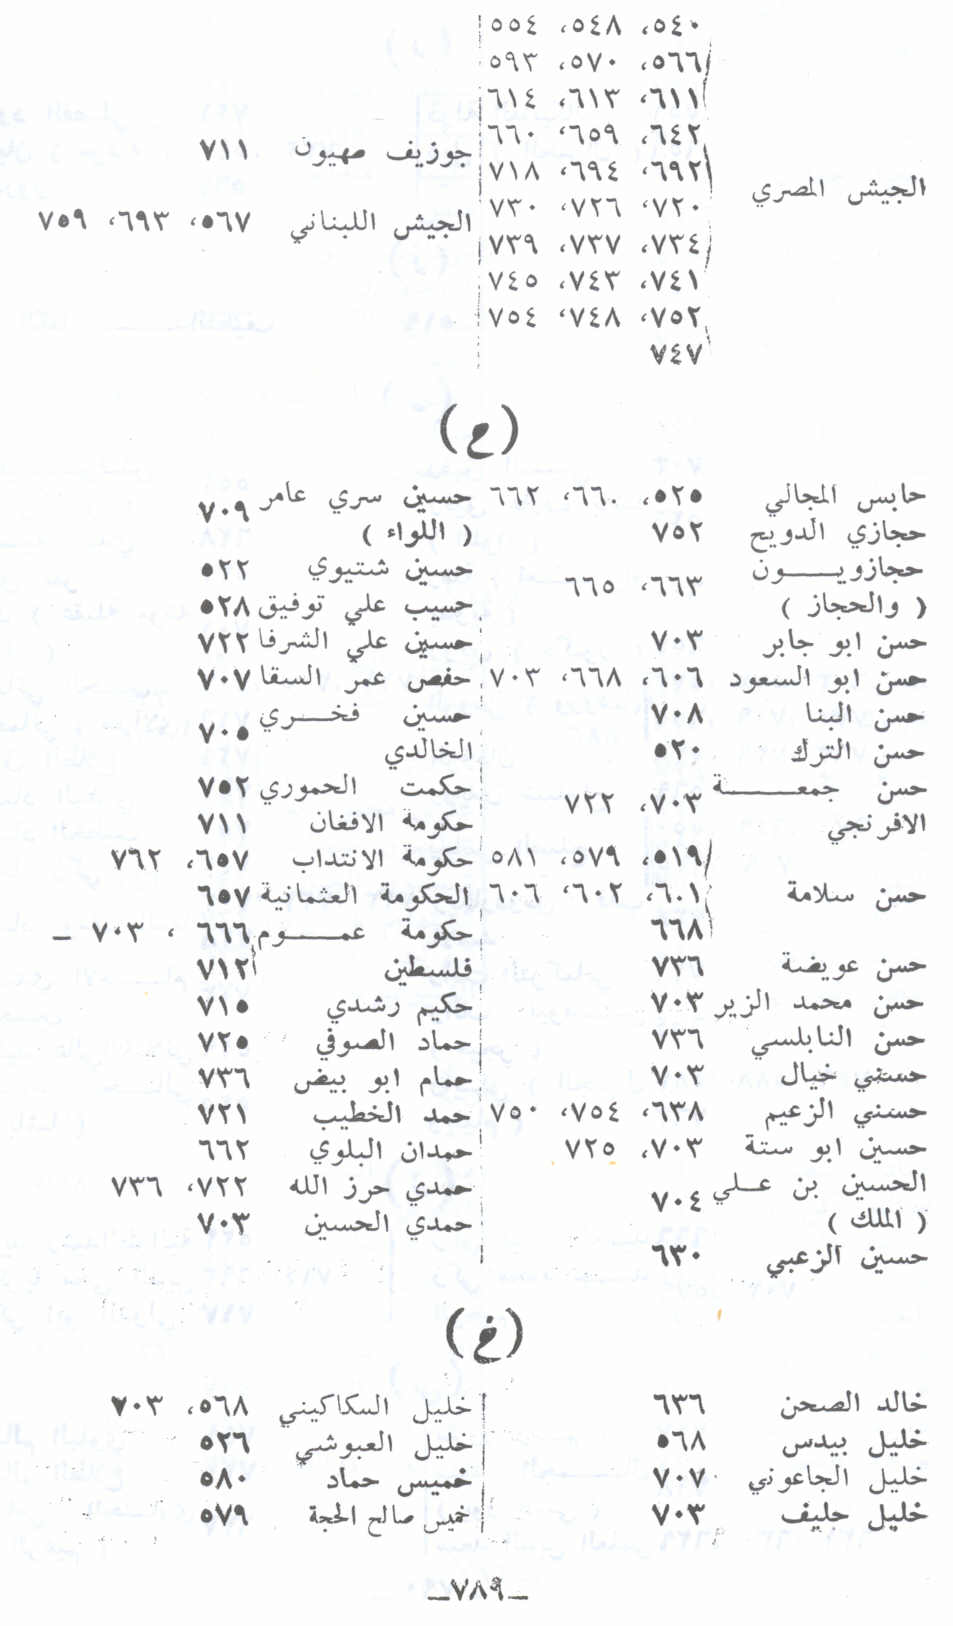 ٥٤٠، ٥٤٨، ٥٥٤
٥٦٦، ٥٧٠، ٥٩٣
٦١١، ٦١٣، ٦١٤
٦٤٢، ٦٥٩، ٦٦٠
الجيش المصري ٦٩٢، ٦٩٤، ٧١٨
٧٢٠، ٧٢٦، ٧٣٠
٧٣٤، ٧٣٧، ٧٣٩
٧٤١، ٧٤٣، ٧٤٥
٧٥٢، ٧٤٨، ٧٥٤
٧٤٧
جوزيف صهيون ٧١١
الجيش اللبناني ٥٦٧، ٦٩٣، ٧٥٩
(ح)
حابس المجالي ٥٢٥، ٦٦٠، ٦٦٢
حجازي الدويح ٧٥٢
حجازويـــون ٦٦٣، ٦٦٥
( والحجاز )
حسن ابو جابر ٧٠٣
حسن ابو السعود ٦٠٦، ٦٦٨، ٧٠٣
حسن البنا ٧٠٨
حسن الترك ٥٢٠
حسن جمعـــــة ٧٠٣، ٧٢٢
الافرنجي
٥١٩، ٥٧٩، ٥٨١
حسن سلامة ٦٠١، ٦٠٢، ٦٠٦
٦٦٨
حسن عويضة ٧٣٦
حسن محمد الزير ٧٠٣
حسن النابلسي ٧٣٦
حسني خيال ٧٠٣
حسني الزعيم ٦٣٨، ٧٥٤، ٧٥٠
حسين ابو ستة ٧٠٣، ٧٢٥
الحسين بن عـلي ٧٠٤
( الملك )
حسين الزعبي ٦٣٠
حسين سري عامر ٧٠٩
( اللواء )
حسين شتيوي ٥٢٢
حسيب علي توفيق ٥٢٨
حسين علي الشرفا ٧٢٢
حفص عمر السقا ٧٠٧
حسين فخـــري ٧٠٥
الخالدي
حكمت الحموري ٧٥٢
حكومة الافغان ٧١١
حكومة الانتداب ٦٥٧، ٧٦٢
الحكومة العثمانية ٦٥٧
حكومة عمـــوم ٦٦٦ ، ٧٠٣ ـ
فلسطين ٧١٢
حكيم رشدي ٧١٥
حماد الصوفي ٧٢٥
حمام ابو بيض ٧٣٦
حمد الخطيب ٧٢١
حمدان البلوي ٦٦٢
حمدي حرز الله ٧٢٢، ٧٣٦
حمدي الحسين ٧٠٣
(خ)
خالد الصحن ٦٣٦
خليل بيدس ٥٦٨
خليل الجاعوني ٧٠٧
خليل حليف ٧٠٣
خليل السكاكيني ٥٦٨، ٧٠٣
خليل العبوشي ٥٢٦
خميس حماد ٥٨٠
خميس صالح الحجة ٥٧٩
ـ٧٨٩ـ